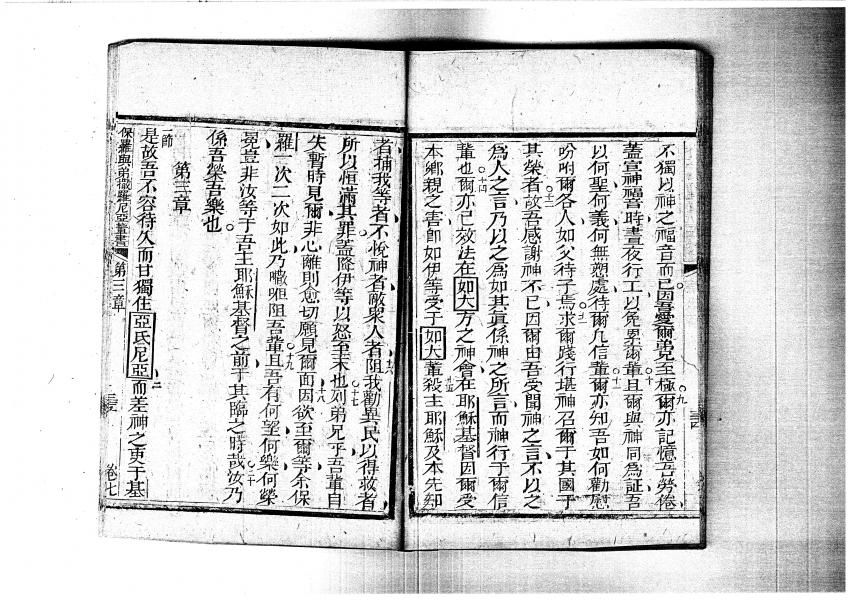 不獨以神之福音而已因吾愛爾弟兄至極九爾亦記憶吾勞倦
蓋宣神福音時晝夜行工以免累爾輩十且爾與神同為証吾
以何聖何義何無塑處待爾凡信輩十一爾亦知吾如何勸慰
吩咐爾各人如父待子焉十二求爾踐行堪神召爾于其國于
其榮者十三故吾感謝神不已因爾由吾受聞神之言不以之
為人之言乃以之為如其真係神之所言而神行于爾信
輩也十四爾亦已效法在如大方之神會在耶穌基督因爾受
本鄉親之害即如伊等受于如大輩十五殺主耶穌及本先知
者捕我等者不悅神者敵衆人者十六阻我勸異民以得救者
所以恒滿其罪蓋降伊等以怒至末也十七列弟兄乎吾輩自
失暫時見爾非心離則愈切願見爾面十八因欲至爾等余保
羅一次二次如此乃囉呾阻吾輩十九且吾有何望何樂何榮
冕豈非汝等于吾主耶穌基督之前于其臨之時哉二十汝乃
係吾榮吾樂也
第三章
一節
是故吾不容待久而甘獨住亞氐尼亞二而差神之吏于基
保羅與弟撒羅尼亞輩書 第三章 三 卷七